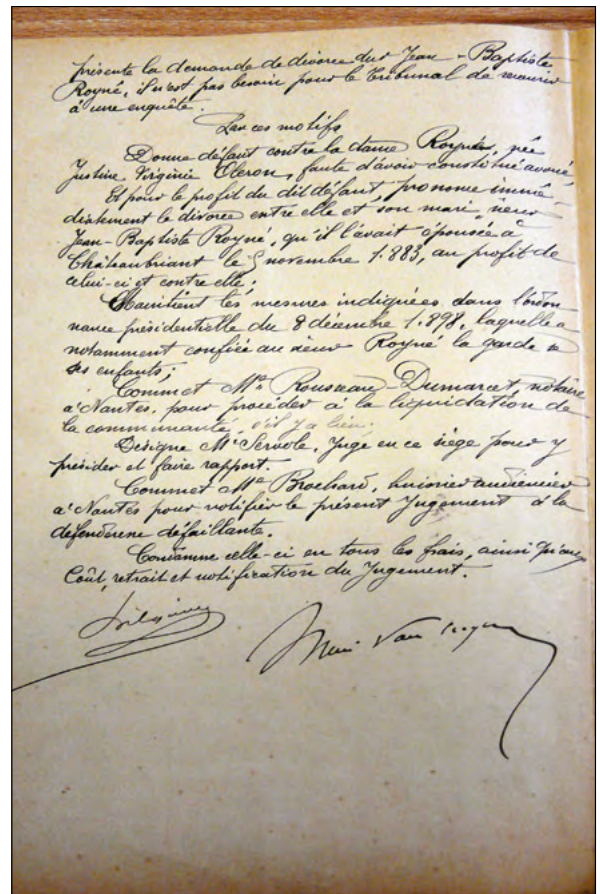 présente la demande de divorce dudt Jean-Baptiste
Royné, il n'est pas besoin pour le Tribunal de recourir
à une enquête.
Par ces motifs
Donne défaut contre la dame Royné, née
Justine Virginie Oleron, faute d'avoir constitué avoué,
Et pour le profit du dit défaut, prononce immé-
diatement le divorce entre elle et son mari, sieur
Jean-Baptiste Royné, qu'il l'avait épousée à
Châteaubriant le 5 novembre 1.883, au profit de
celui-ci et contre elle;
Maintient les mesures indiquées dans l'ordon
nance présidentielle du 8 décembre 1.898, laquelle a
notamment confiée au sieur Royné la garde de
ses enfants;
Commet Me Rousseau-Dumarcet, notaire
à Nantes, pour procéder à la liquidation de
la communauté, s'il y a lieu.
Désigne Mr Servole, Juge en ce siège pour y
présider et faire rapport.
Commet Me Brochard, huissier audiencier
à Nantes pour notifier le présent Jugement à la
défenderesse défaillante.
Condamne celle-ci en tous les frais, ainsi qu'aux
Coût, retrait et notification du Jugement.